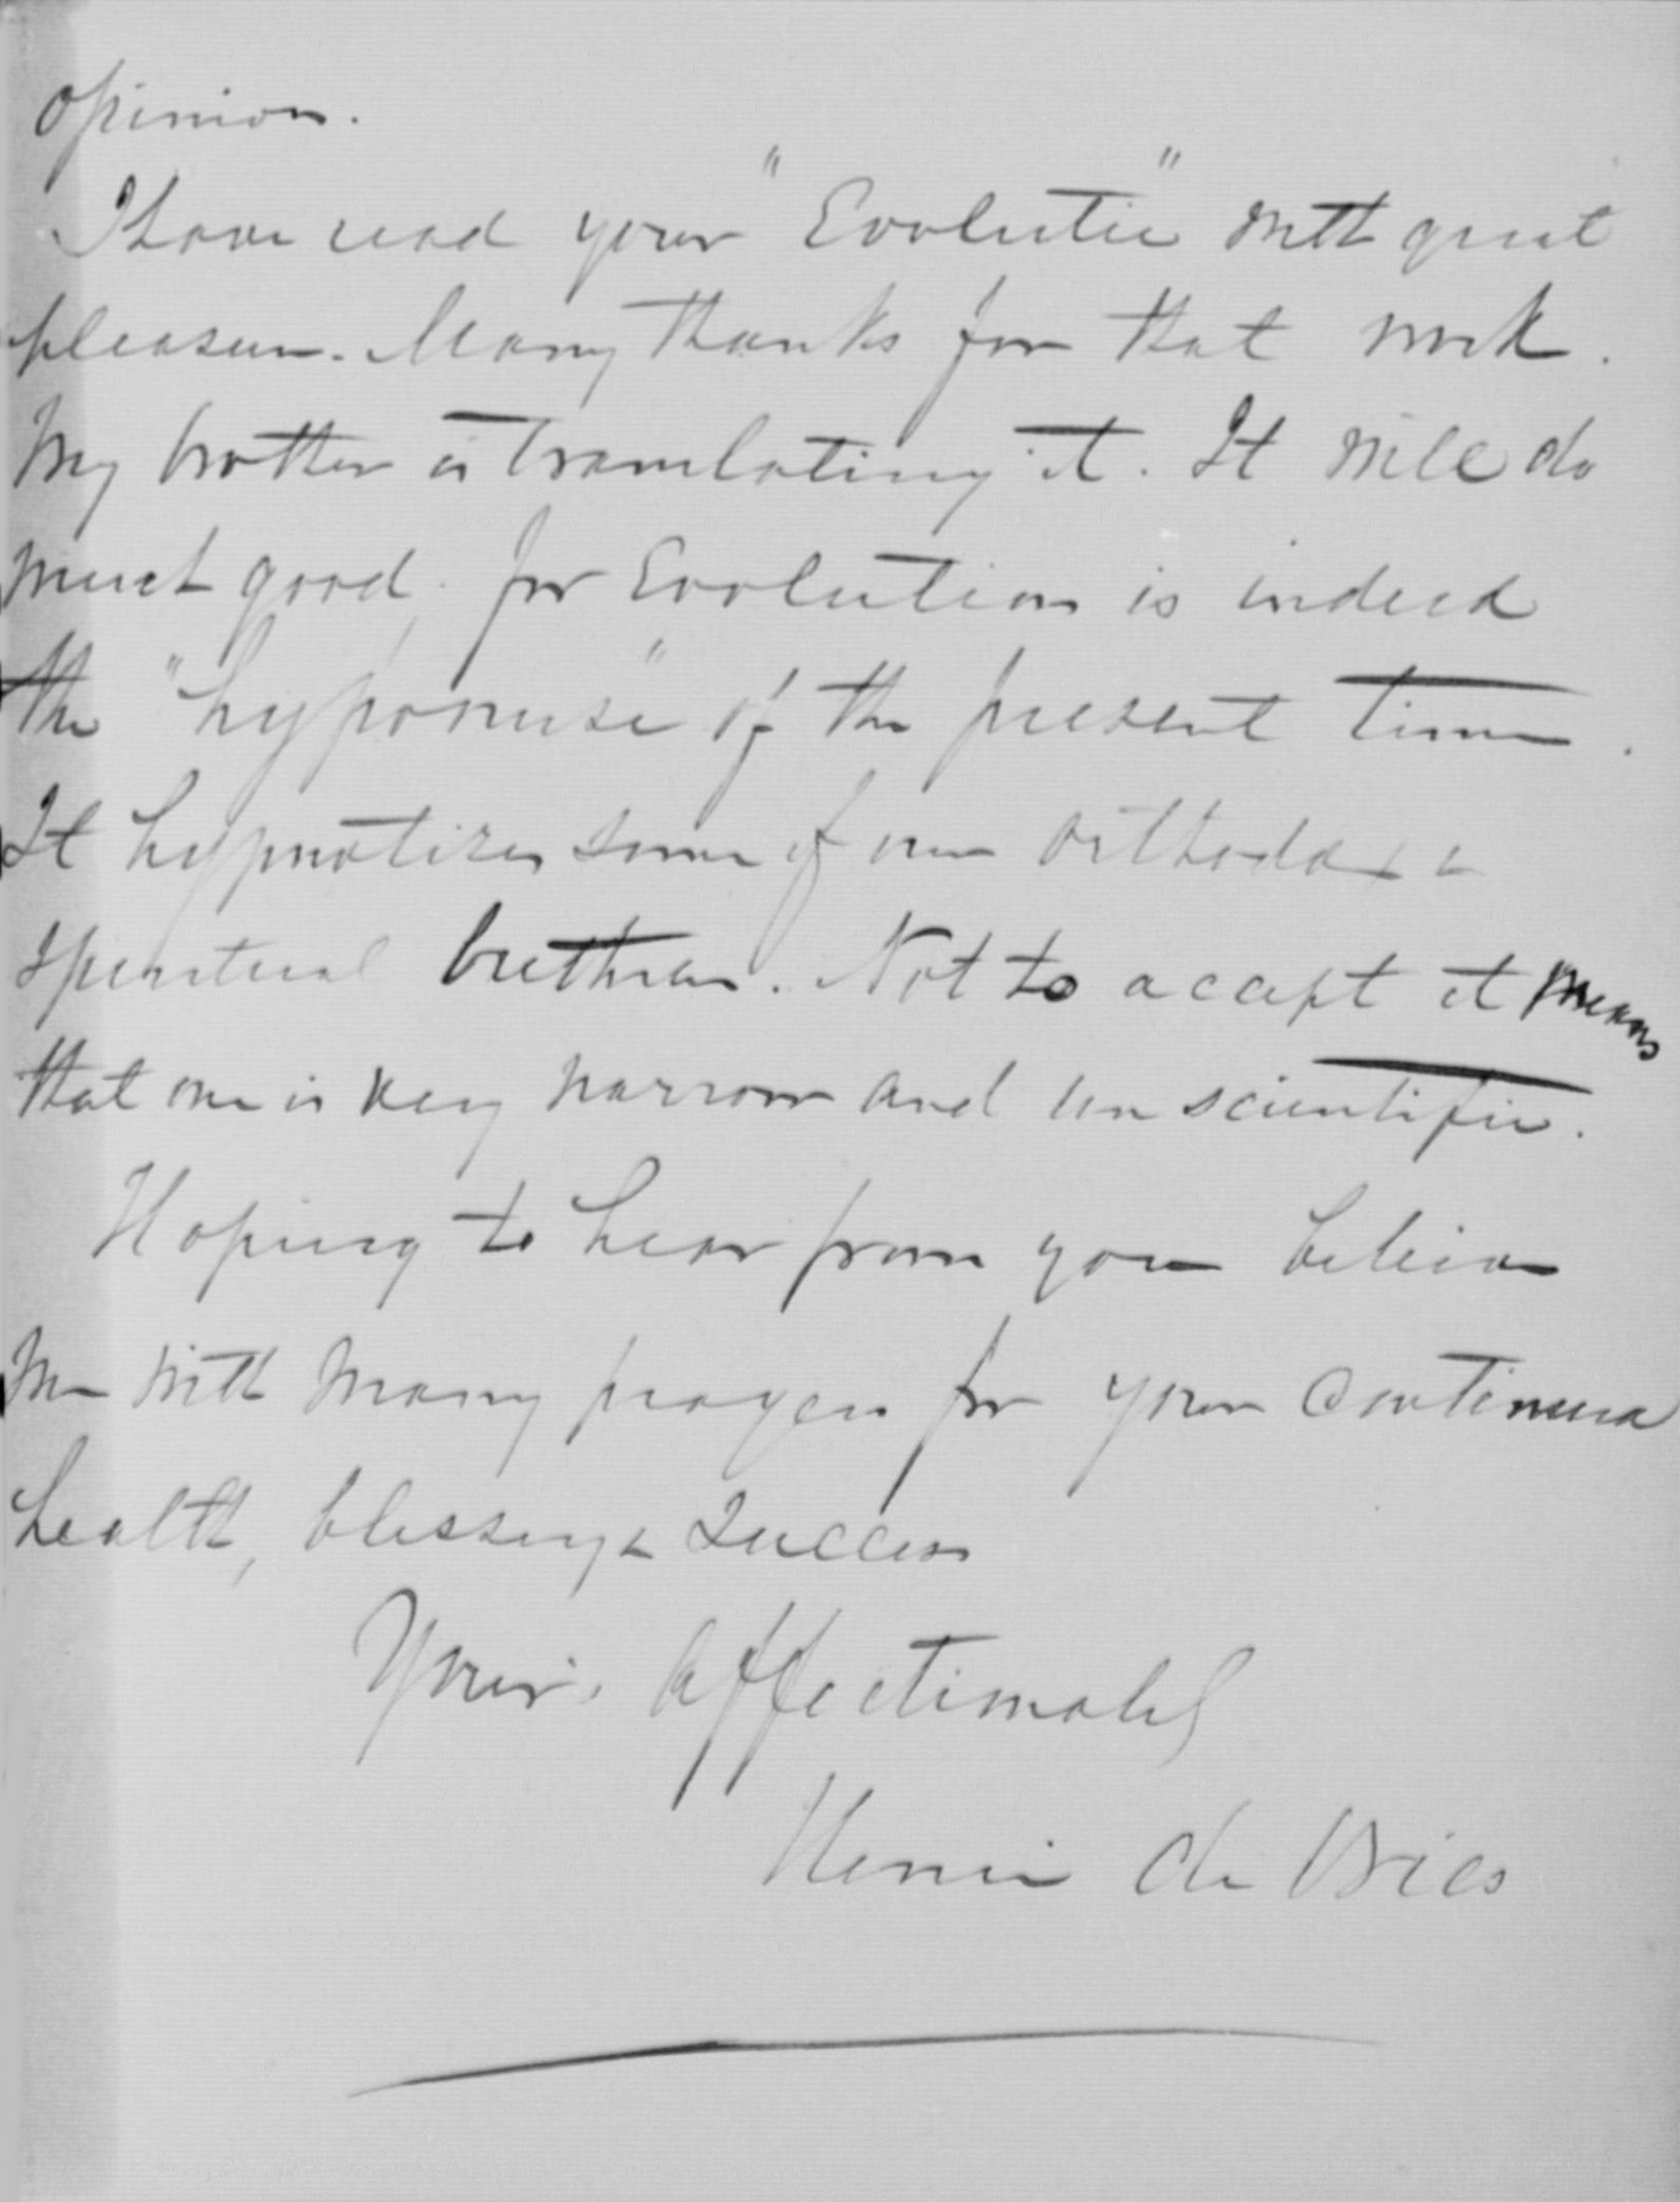 opinion.
I have read your "Evolutie" with great
pleasure. Many thanks for that work.
My brother is translating it. It will do
much good, for Evolution is indeed
the " " of the present time.
It hypnotizes some of our orthodox &
spiritual brethren. Not to accept it means
that one is very narrow and unscientific.
Hoping to hear from you believe
me with many prayers for your continued
health, blessing & success
Yours affectionately
Henri de Vries